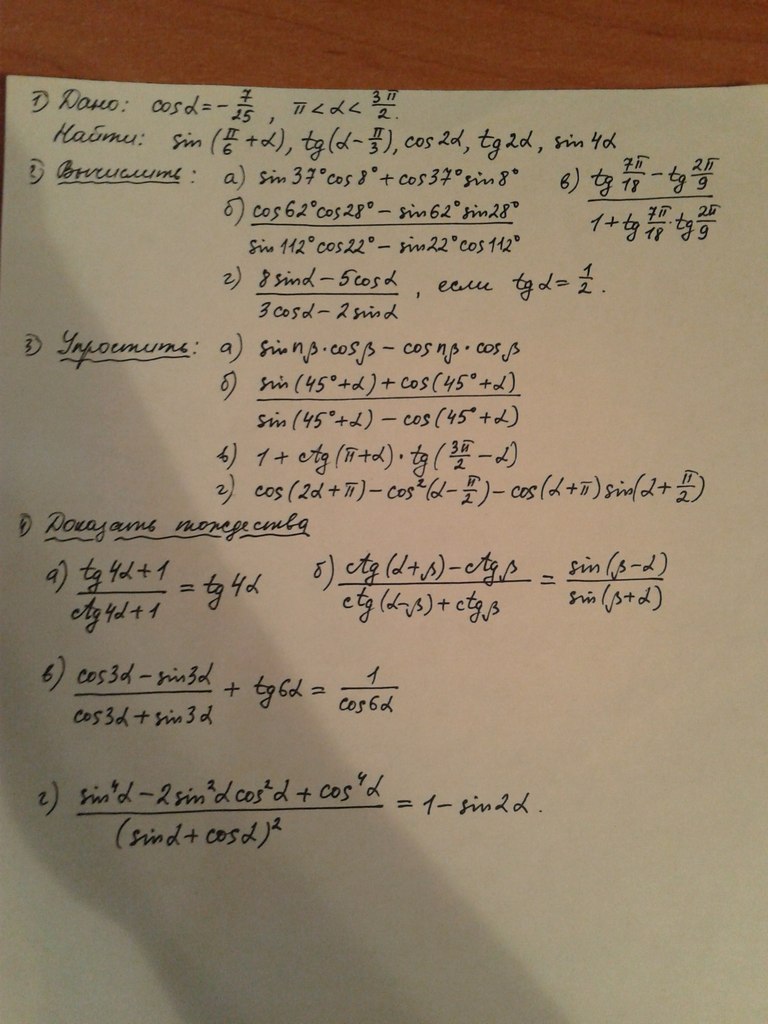 1) Дано: cosα = -7/25, π < α < 3π/2.
Найти: sin(π/6 + α), tg(α - π/3), cos2α, tg2α, sin4α
2) Вычислить: а) sin37°cos8° + cos37°sin8°
в) (tg 7π/18 - tg 2π/9) / (1 + tg 7π/18 · tg 2π/9)
б) (cos62°cos28° - sin62°sin28°) / (sin112°cos22° - sin22°cos112°)
г) (8sinα - 5cosα) / (3cosα - 2sinα), если tgα = 1/2.
3) Упростить: а) sinnβ·cosβ - cosnβ·cosβ
б) (sin(45°+α) + cos(45°+α)) / (sin(45°+α) - cos(45°+α))
в) 1 + ctg(π+α)·tg(3π/2 - α)
г) cos(2α+π) - cos²(α - π/2) - cos(α+π)sin(α + π/2)
4) Доказать тождества
а) (tg4α+1) / (ctg4α+1) = tg4α
б) (ctg(α+β) - ctgβ) / (ctg(α-β) + ctgβ) = sin(β-α) / sin(β+α)
в) (cos3α - sin3α) / (cos3α + sin3α) + tg6α = 1/cos6α
г) (sin⁴α - 2sin²αcos²α + cos⁴α) / (sinα + cosα)² = 1 - sin2α.